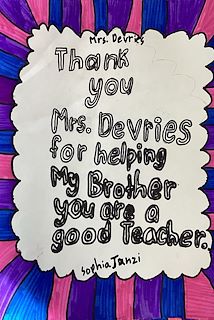 Mrs. Devries
Thank
you
Mrs. Devries
for helping
My Brother
you are a
good Teacher.
Sophia Janzi